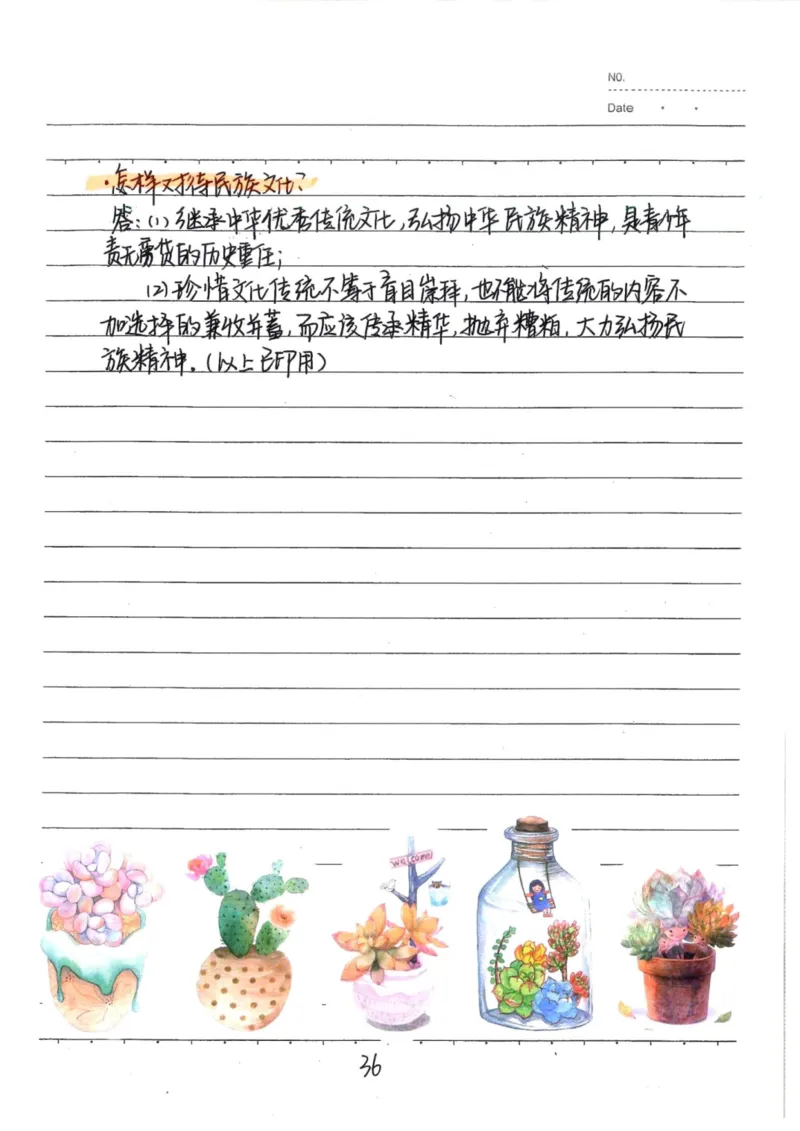 NO.
Date
·怎样对待民族文化?
答:(1)继承中华优秀传统文化,弘扬中华民族精神,是青少年
责无旁贷的历史重任;
(2)珍惜文化传统不等于盲目崇拜,也不能将传统的内容不
加选择的兼收并蓄,而应该传承精华,抛弃糟粕,大力弘扬民
族精神.(以上已印用)
welcome
36